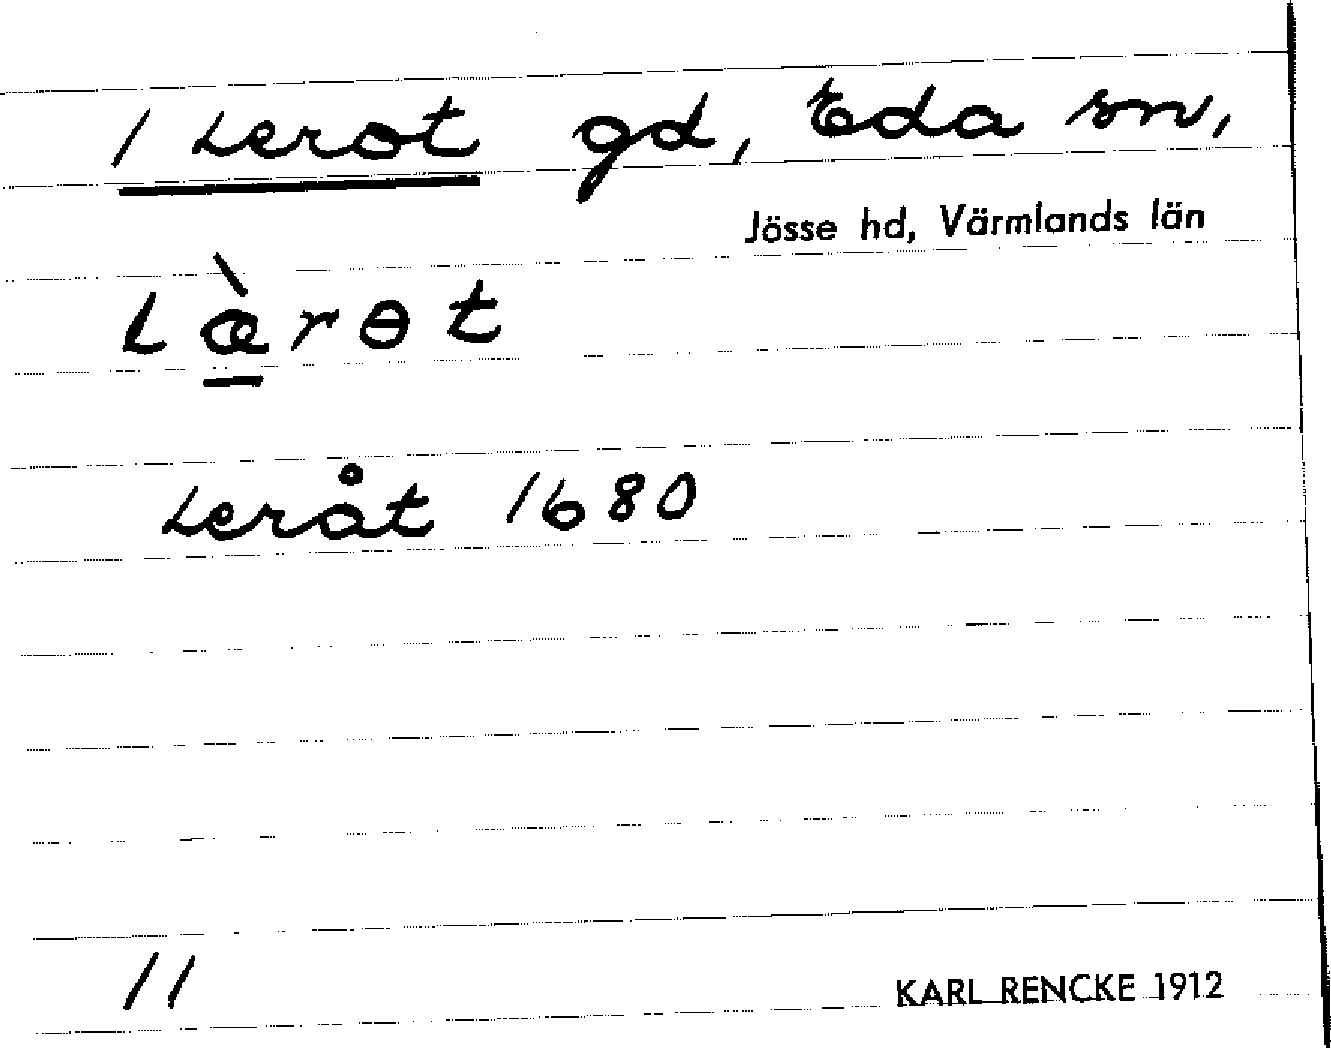 1 Lerot gd, Eda sn,
Jösse hd, Värmlands län
Læ̀rɵt
Leråt 1680
11
KARL RENCKE 1912